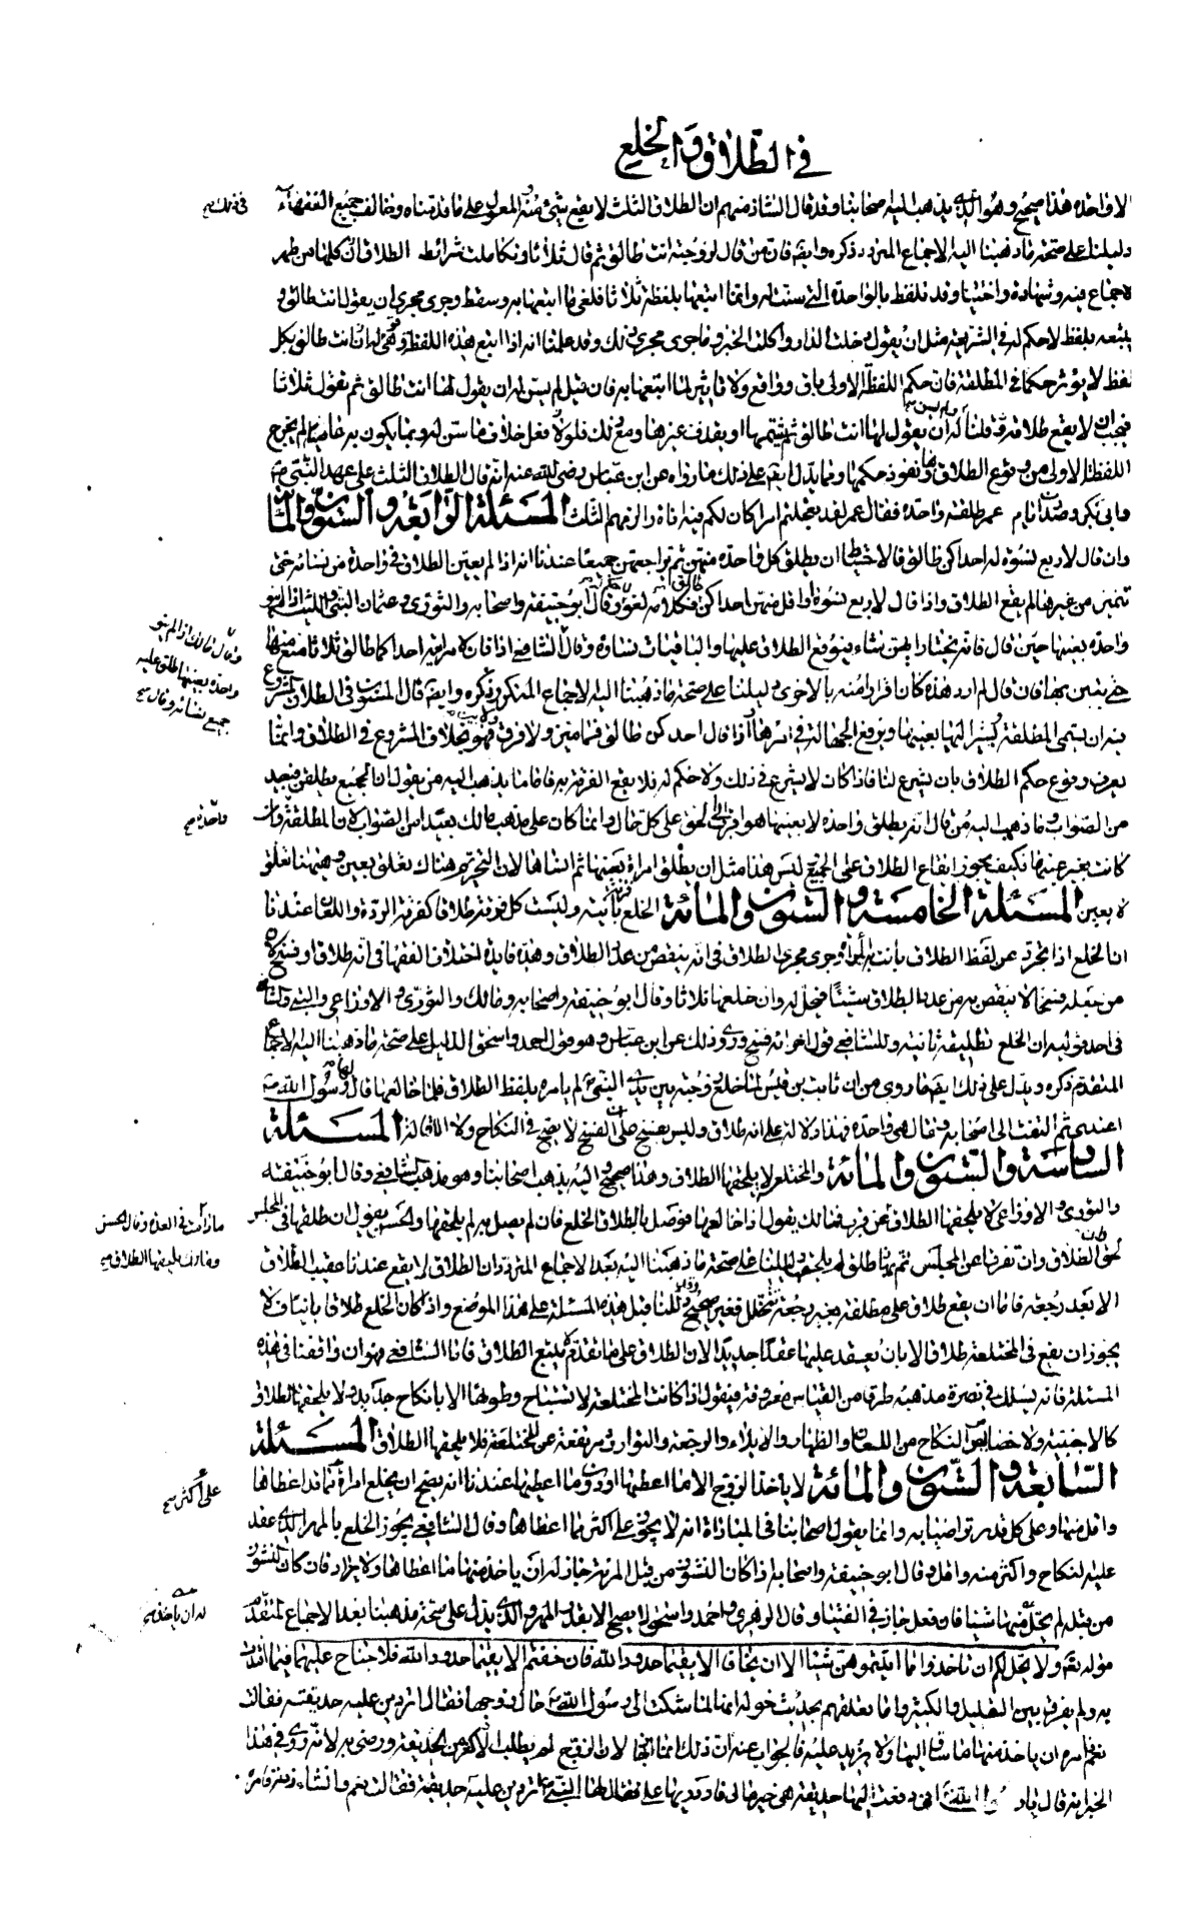 في الطلاق والخلع
الا واحدة هذا صحيح وهو الذي يذهب اليه اصحابنا وقد قال الشاذ منهم ان الطلاق الثلث لا يقع شئ منه المعول على ما قدمناه وخالف جميع الفقهاء في ذلك
دليلنا على صحة ما ذهبنا اليه الاجماع المتردد ذكره وايضا فان من قال لزوجته انت طالق ثم قال ثلاثا وتكاملت شرائط الطلاق
اجماع فيه وشهادة واختيار وقد تلفظ بالواحدة التي سنت له وانما اتبعها بلفظة ثلاثا فلغى ما اتبعها به وسقط وجرى مجرى ان يقول انت طالق و
يتبعه بلفظ لا حكم له في الشريعة مثل ان يقول دخلت الدار واكلت الخبز وما جرى مجرى ذلك وقد علمنا انه اذا اتبع هذه اللفظة
لفظ لا يؤثر حكما في المطلقة فان حكم اللفظة الاولى باق وواقع ولا تأثير لما اتبعها به فان قيل لم يسن له ان يقول لها انت طالق ثم يقول ثلاثا
فيجب ان لا يقع طلاقه قلنا له ان يقول لها انت طالق ثم يشتمها او يقذف غيرها ومع ذلك فلو فعل خلاف ما سن له مما يكون به عاصيا لم يخرج
اللفظ الاولى من وقوع الطلاق بها ونفوذ حكمها ومما يدل ايضا على ذلك ما رواه عن ابن عباس رضي الله عنه انه قال الطلاق الثلث على عهد النبي
وابي بكر وصدر ايام عمر طلقة واحدة فقال عمر لقد تعجلتم امرا كان لكم فيه اناة والزمهم الثلث المسئلة الرابعة والستون والمائة
وان قال لاربع نسوة له احداكن طالق فالاحتياط ان يطلق كل واحدة منهن ثم يراجعهن جميعا عندنا انه اذا لم يعين الطلاق في واحدة من نسائه حتى
تتميز من غيرها لم يقع الطلاق واذا قال لاربع نسوة او اقل منهن احداكن طالق فكلامه لغو وقال ابو حنيفة واصحابه والثوري وعثمان البتي والليث اذا لم ينو
واحدة بعينها حين قال فانه يختار ايتهن شاء فيوقع الطلاق عليها والباقيات نساؤه وقال الشافعي اذا قال لامراتيه احداكما طالق ثلاثا منع منها
وقال مالك اذا لم ينو
واحدة بعينها طلق عليه
جميع نسائه وقال
حتى يتبين بها فان قال لم ارد هذه كان اقرارا منه بالاخرى دليلنا على صحة ما ذهبنا اليه الاجماع المتكرر ذكره وايضا فان المسنون في الطلاق المشروع
فيه ان يسمى المطلقة ويشير اليها بعينها ويرفع الجهالة في امرها اذا قال احداكن طالق فما بين ولا فرق فهو بخلاف المشروع في الطلاق وانما
يعرف وقوع حكم الطلاق بان يشرع لنا فاذا كان لا يشرع في ذلك ولا حكم له فلا يقع الفرقة به فاما ما يذهب اليه من يقول ان الجميع يطلقن فبعيد
من الصواب وما ذهب اليه من قال انه يطلق واحدة لا بعينها هو اقرب الى الحق على كل حال وانما كان على مذهب مالك بعيدا من الصواب لان المطلقة
واحدة
كانت بغير عينها فكيف يجوز ايقاع الطلاق على الجميع ليس هذا مثل ان يطلق امراة بعينها ثم انساها لان التحريم هناك تعلق بعين وههنا تعلق
لا بعين المسئلة الخامسة والستون والمائة الخلع فرقة بائنة وليست كل فرقة طلاقا كفرقة الردة واللعان عندنا
ان الخلع اذا تجرد عن لفظ الطلاق بانت به المراة وجرى مجرى الطلاق في انه ينقص من عدد الطلاق وهذه فايدة اختلاف الفقهاء في انه طلاق او فسخ لانه
من جعله فسخا لا ينقص به من عدد الطلاق شيئا فيحل له وان خلعها ثلاثا وقال ابو حنيفة واصحابه ومالك والثوري والاوزاعي والبتي والشافعي
في احد قوليه ان الخلع تطليقة بائنة وللشافعي قول اخر انه فسخ وروى ذلك عن ابن عباس وهو قول احمد واسحق الدليل على صحة ما ذهبنا اليه الاجماع
المتقدم ذكره ويدل على ذلك ايضا ما روى من ان ثابت بن قيس لما خلع زوجته بين يدي النبي لم يامره بلفظ الطلاق فلما خالعها قال لها رسول الله
اعتدي ثم التفت الى اصحابه وقال هي واحدة فهذا دلالة على انه طلاق وليس بفسخ على ان الفسخ لا يصح في النكاح ولا الاقالة المسئلة
السادسة والستون والمائة والمختلعة لا يلحقها الطلاق وهذا صحيح واليه يذهب اصحابنا وهو مذهب الشافعي وقال ابو حنيفة
والثوري والاوزاعي يلحقها الطلاق
ما دامت في العدة وقال الحسن
ومالك يلحقها الطلاق
فمالك يقول اذا خالعها فوصل بالطلاق الخلع فان لم يصل به لم يلحقها والحسن يقول ان طلقها في المجلس
لحق الطلاق وان تفرقا عن المجلس ثم طلق لم يلحق دليلنا على صحة ما ذهبنا اليه بعد الاجماع المتردد ان الطلاق لا يقع عندنا عقيب الطلاق
الا بعد رجعة فاما ان يقع طلاق على مطلقة بغير رجعة تتخلل فغير صحيح وقد دللنا قبل هذه المسئلة على هذا الموضع واذا كان الخلع طلاقا بائنا فلا
يجوز ان يقع في المختلعة طلاق الا بان يعقد عليها عقدا جديدا لان الطلاق على ما تقدم لا يتبع الطلاق فاما الشافعي فهو ان وافقنا في هذه
المسئلة فانه يسلك في نصرة مذهبه طرق من القياس معروفة فيقول اذا كانت المختلعة لا تستباح وطؤها الا بنكاح جديد ولا يلحقها الطلاق
كالاجنبية ولا خصائص النكاح من اللعان والظهار والايلاء والرجعة والتوارث مرتفعة عن المختلعة فلا يلحقها الطلاق المسئلة
السابعة والستون والمائة لا ياخذ الزوج الا ما اعطيها او دون ما اعطيها عندنا انه يصح ان يخلع امراة على اكثر مما قد اعطاها
واقل منها وعلى كل قدر تراضيا به وانما يقول اصحابنا في المباراة انه لا يجوز على اكثر مما اعطاها وقال الشافعي يجوز الخلع بالمهر الذي عقد
عليه النكاح واكثر منه واقل وقال ابو حنيفة واصحابه اذا كان النشوز من قبل المرئة جاز له ان ياخذ منها ما اعطاها ولا يزداد فان كان النشوز
من قبله لم يحل له ان ياخذ منها شيئا فان فعل جاز في القضاء وقال الزهري واحمد واسحق لا يصح الا بقدر المهر والذي يدل على صحة مذهبنا بعد الاجماع المتقدم
قوله تعالى ولا يحل لكم ان تاخذوا مما آتيتموهن شيئا الا ان يخافا الا يقيما حدود الله فان خفتم الا يقيما حدود الله فلا جناح عليهما فيما افتدت
به ولم يفرق بين القليل والكثير واما تعلقهم بحديث خولة انها لما شكت الى رسول الله حال زوجها فقال اتردين عليه حديقته فقالت
نعم فامره ان ياخذ منها ما ساق اليها ولا يزيد عليه فالجواب عنه ان ذلك انما لان الزوج لم يطلب الاكثر من الحديقة ورضى به لانه روى في هذا
الخبر انه قال يا رسول الله اني دفعت اليها حديقة هي خير مالي فان تردها علي فقال لها النبي اتردين عليه حديقته فقالت نعم وان شاء زدته فامر